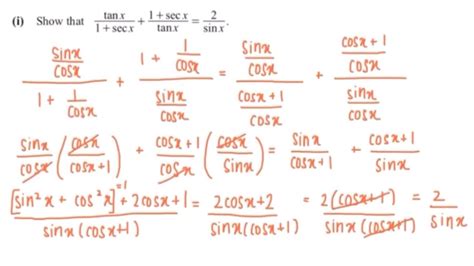 (i) Show that tan x / (1 + sec x) + (1 + sec x) / tan x = 2 / sin x.
(sinx/cosx) / (1 + 1/cosx) + (1 + 1/cosx) / (sinx/cosx) = (sinx/cosx) / ((cosx+1)/cosx) + ((cosx+1)/cosx) / (sinx/cosx)
sinx/cosx (cosx/(cosx+1)) + (cosx+1)/cosx (cosx/sinx) = sinx/(cosx+1) + (cosx+1)/sinx
([sin²x + cos²x]=1 + 2cosx+1) / (sinx(cosx+1)) = (2cosx+2) / (sinx(cosx+1)) = 2(cosx+1) / (sinx(cosx+1)) = 2/sinx